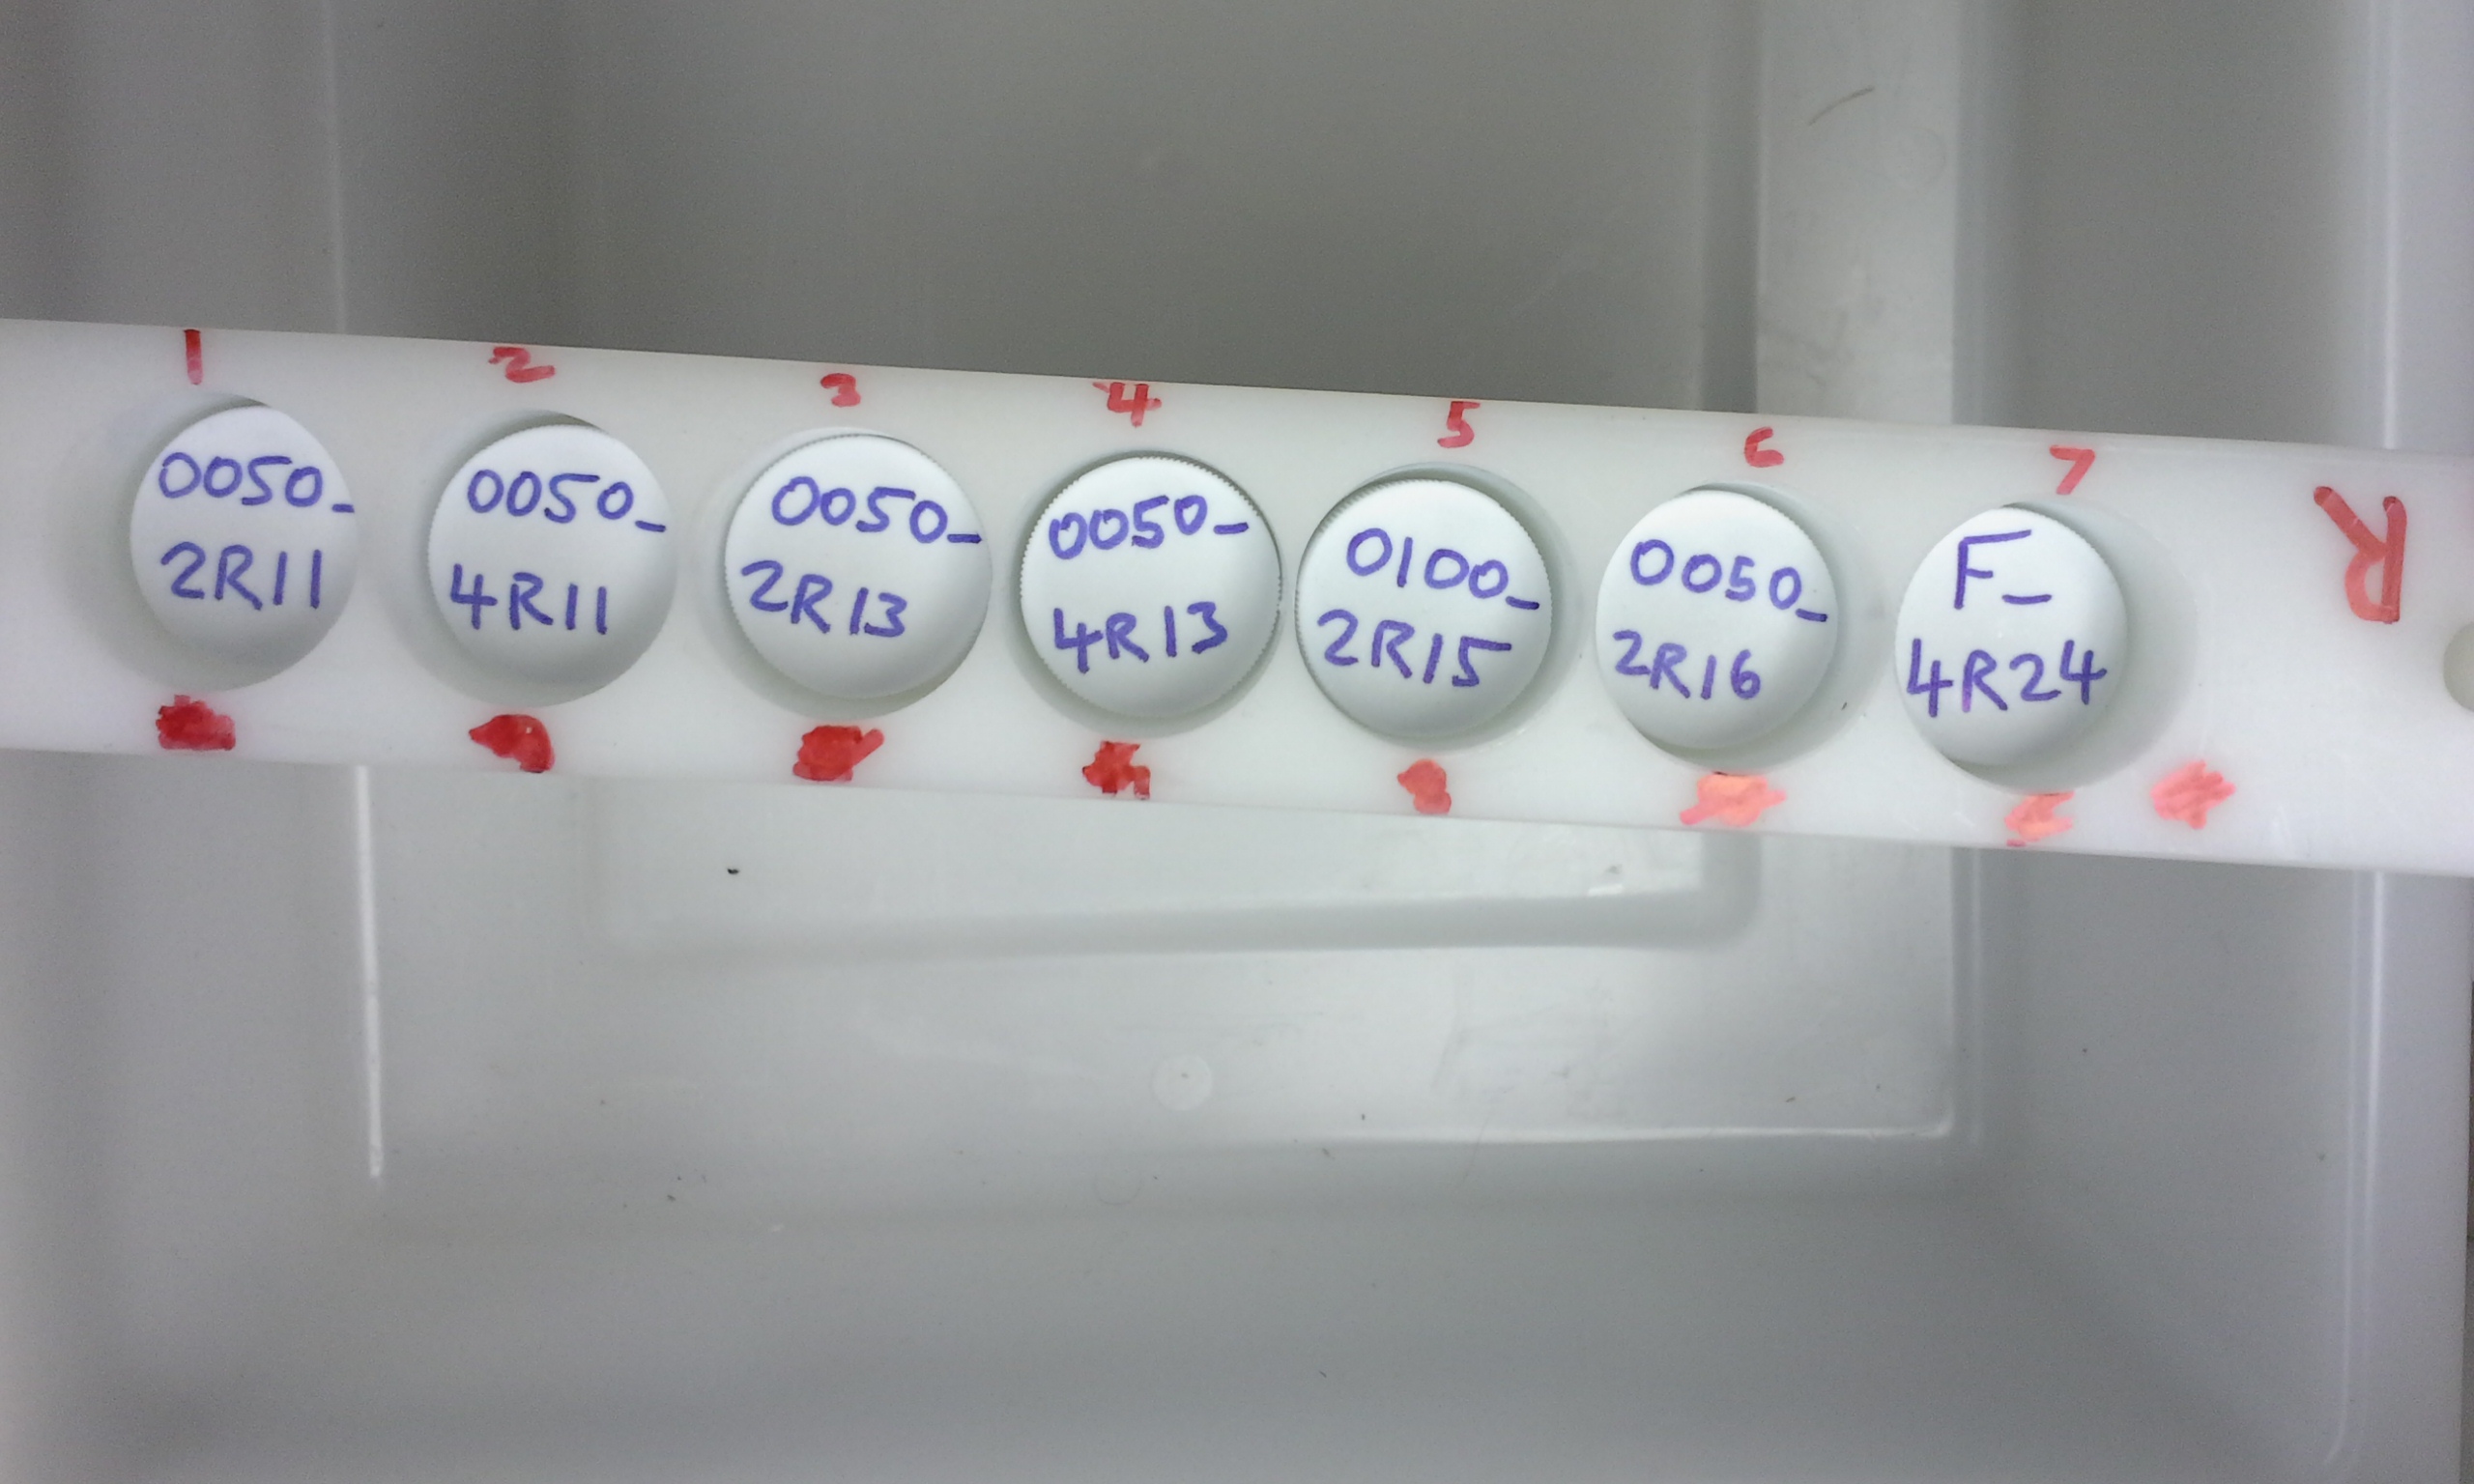 1
0050-
2R11
2
0050-
4R11
3
0050-
2R13
4
0050-
4R13
5
0100-
2R15
6
0050-
2R16
7
F-
4R24
R